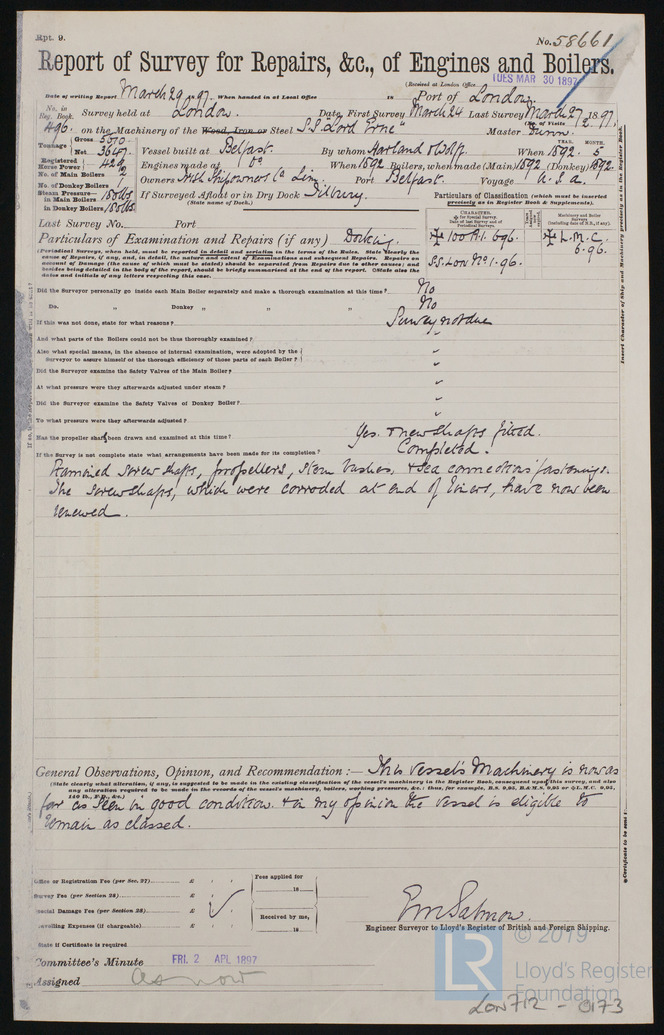 Rpt. 9.
No. 58661
Report of Survey for Repairs, &c., of Engines and Boilers.
(Received at London Office
TUES MAR 30 1897
Date of writing Report March 29 1897. When handed in at Local Office 18 Port of London.
No. in Reg. Book. 496.
Survey held at London. Date, First Survey March 24 Last Survey March 27 1897.
(No. of Visits 2)
on the Machinery of the Wood, Iron or Steel S.S. Lord Erne Master Dunn.
Tonnage Gross 5070. Net 3647.
Vessel built at Belfast. By whom Harland & Wolff. When 1892. 5
YEAR. MONTH.
Registered Horse Power 429
Engines made at Do When 1892 Boilers, when made (Main) 1892 (Donkey) 1892.
No. of Main Boilers 2
Owners Irish Shipowners Co Lim. Port Belfast. Voyage U.S.A.
No. of Donkey Boilers
Steam Pressure— in Main Boilers 180 lbs in Donkey Boilers 180 lbs.
If Surveyed Afloat or in Dry Dock Tilbury.
(State name of Dock.)
Particulars of Classification (which must be inserted precisely as in Register Book & Supplements).
Last Survey No. Port
CHARACTER.
100 A.1. 6.96.
S.S. Lon No. 1. 96.
Machinery and Boiler Surveys (including date of N.B., if any).
L.M.C. 6.96.
Particulars of Examination and Repairs (if any) Docking.
(Periodical Surveys, when held, must be reported in detail and seriatim in the terms of the Rules. State clearly the cause of Repairs, if any, and, in detail, the nature and extent of Examinations and subsequent Repairs. Repairs on account of Damage (the cause of which must be stated) should be separated from Repairs due to other causes; and besides being detailed in the body of the report, should be briefly summarised at the end of the report. State also the dates and initials of any letters respecting this case.
Did the Surveyor personally go inside each Main Boiler separately and make a thorough examination at this time? No
Do. " Donkey " " " " No
If this was not done, state for what reasons? Survey not due
And what parts of the Boilers could not be thus thoroughly examined? "
Also what special means, in the absence of internal examination, were adopted by the Surveyor to assure himself of the thorough efficiency of those parts of each Boiler? "
Did the Surveyor examine the Safety Valves of the Main Boiler? "
At what pressure were they afterwards adjusted under steam? "
Did the Surveyor examine the Safety Valves of Donkey Boiler? "
To what pressure were they afterwards adjusted? "
Has the propeller shaft been drawn and examined at this time? Yes. & new shafts fitted.
If the Survey is not complete state what arrangements have been made for its completion? Completed.
Examined screw shafts, propellers, stern bushes, & sea connections fastenings.
The screwshafts, which were corroded at end of liners, have now been
renewed.
General Observations, Opinion, and Recommendation:— This Vessel's Machinery is now as
(State clearly what alteration, if any, is suggested to be made in the existing classification of the vessel's machinery in the Register Book, consequent upon this survey, and also any alteration required to be made in the records of the vessel's machinery, boilers, working pressures, &c.; thus, for example, B.S. 9,95, B.&M.S. 9,95 or L.M.C. 9,95, 140 lb., F.D., &c.)
far as seen in good condition. & in my opinion the vessel is eligible to
remain as classed.
Office or Registration Fee (per Sec. 27) £
Survey Fee (per Section 28) £
Special Damage Fee (per Section 28) £
Travelling Expenses (if chargeable) £
Fees applied for 18
Received by me, 18
State if Certificate is required
E W Salmon.
Engineer Surveyor to Lloyd's Register of British and Foreign Shipping.
Committee's Minute FRI. 2 APL 1897
Assigned as now
Insert Character of Ship and Machinery precisely as in the Register Book.
© 2019
LR
Lloyd's Register
Foundation
LON 712 - 0173